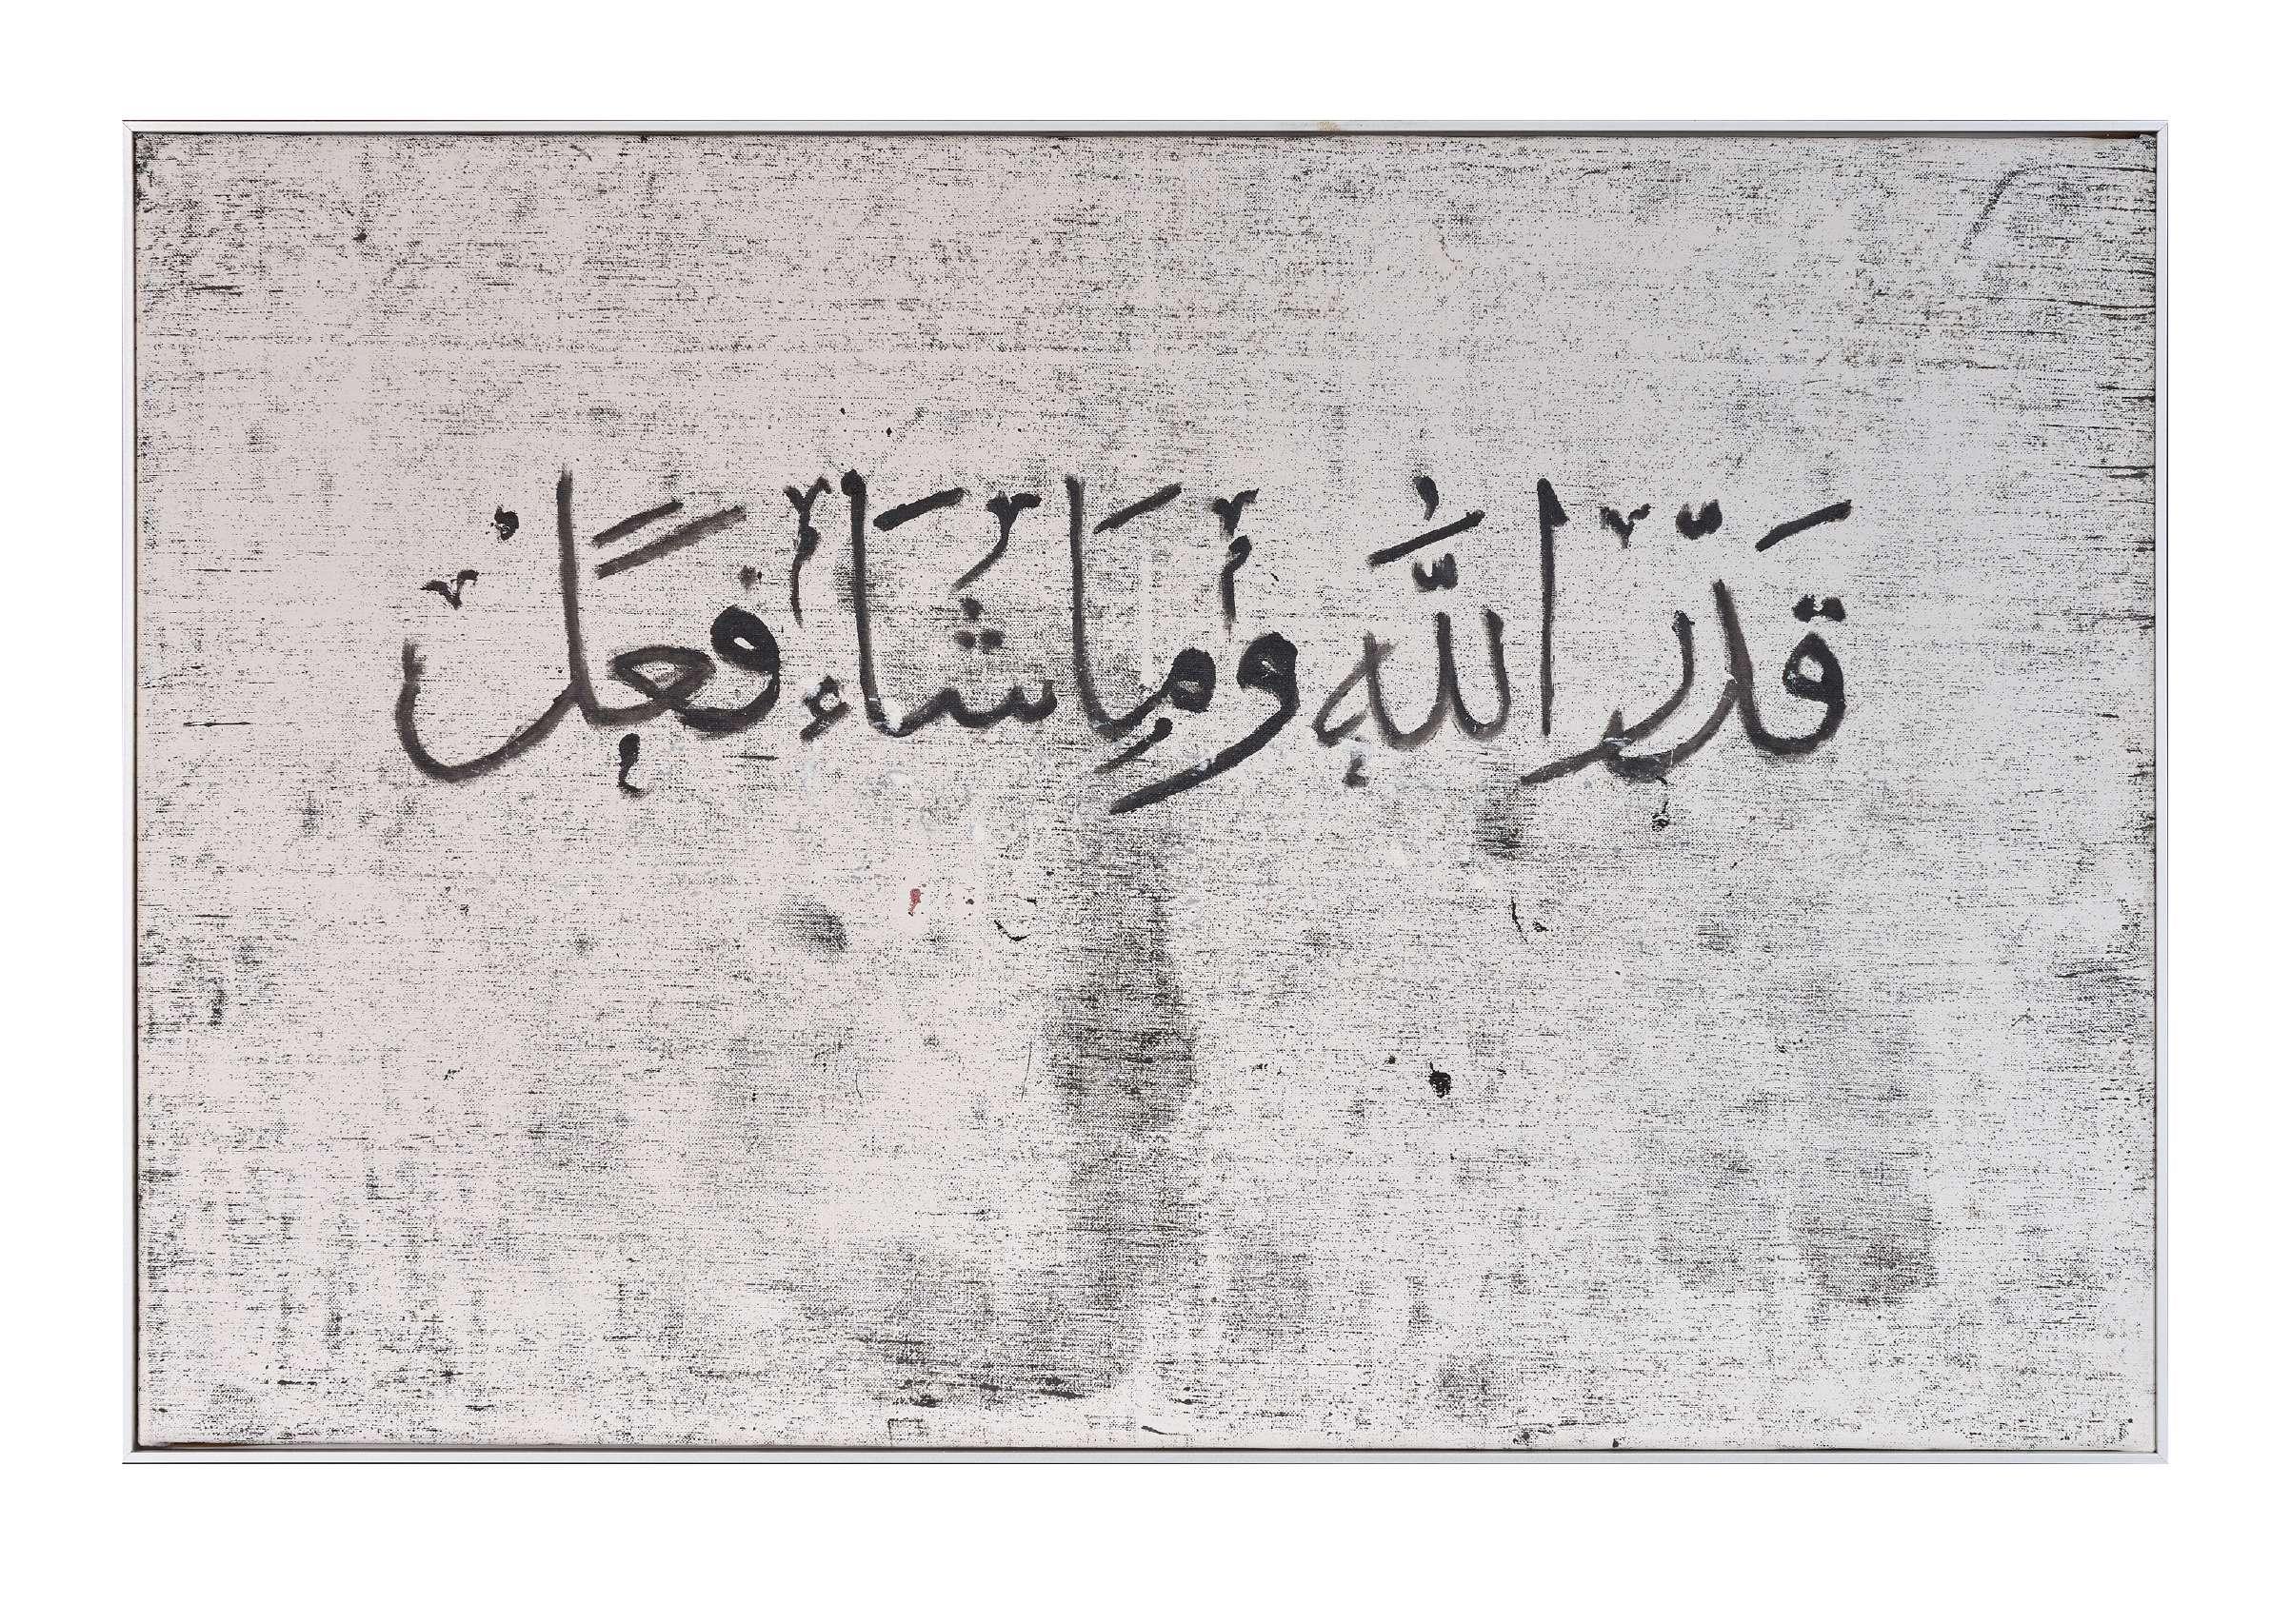 قدّر الله وما شاء فعل